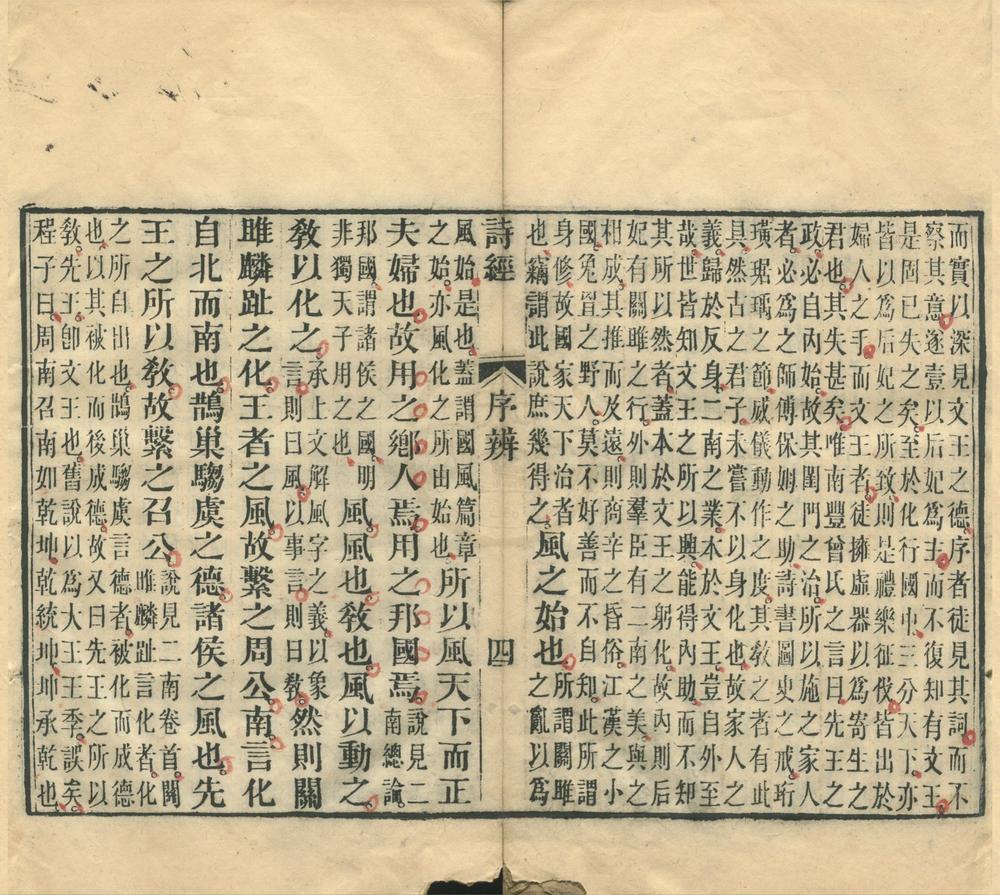 而實以深見文王之德序者徒見其詞而不
察其意遂壹以后妃爲主而不復知有文王
是固已失之矣至於化行國中三分天下亦
皆以爲后妃之所致則是禮樂征伐皆出於
婦人之手而文王者徒擁虛器以爲寄生之
君也其失甚矣唯南豐曾氏之言曰先王之
政必自內始故其閨門之治所以施之家人
者必爲之師傅保姆之助詩書圖史之戒珩
璜琚瑀之節威儀動作之度其敎之者有此
具然古之君子未嘗不以身化也故家人之
義歸於反身二南之業本於文王豈自外至
哉世皆知文王之所以興能得內助而不知
其所以然者蓋本於文王之躬化故內則后
妃有關雎之行外則羣臣有二南之美與之
相成其推而及遠則商辛之昏俗江漢之小
國兔罝之野人莫不好善而不自知此所謂
身修故國家天下治者也
竊謂此說庶幾得之
風之始也
所謂關雎之亂以爲
風始是也蓋謂國風篇章
之始亦風化之所由始也
所以風天下而正
夫婦也故用之鄕人焉用之邦國焉
說見二南總論
邦國謂諸侯之國明
非獨天子用之也
風風也敎也風以動之
敎以化之
承上文解風字之義以象
言則曰風以事言則曰敎
然則關
雎麟趾之化王者之風故繫之周公南言化
自北而南也鵲巢騶虞之德諸侯之風也先
王之所以敎故繫之召公
說見二南卷首關
雎麟趾言化者化
之所自出也鵲巢騶虞言德者被化而成德
也以其被化而後成德故又曰先王之所以
敎先王卽文王也舊說以爲大王王季誤矣
程子曰周南召南如乾坤乾統坤坤承乾也
詩經
序辨
四